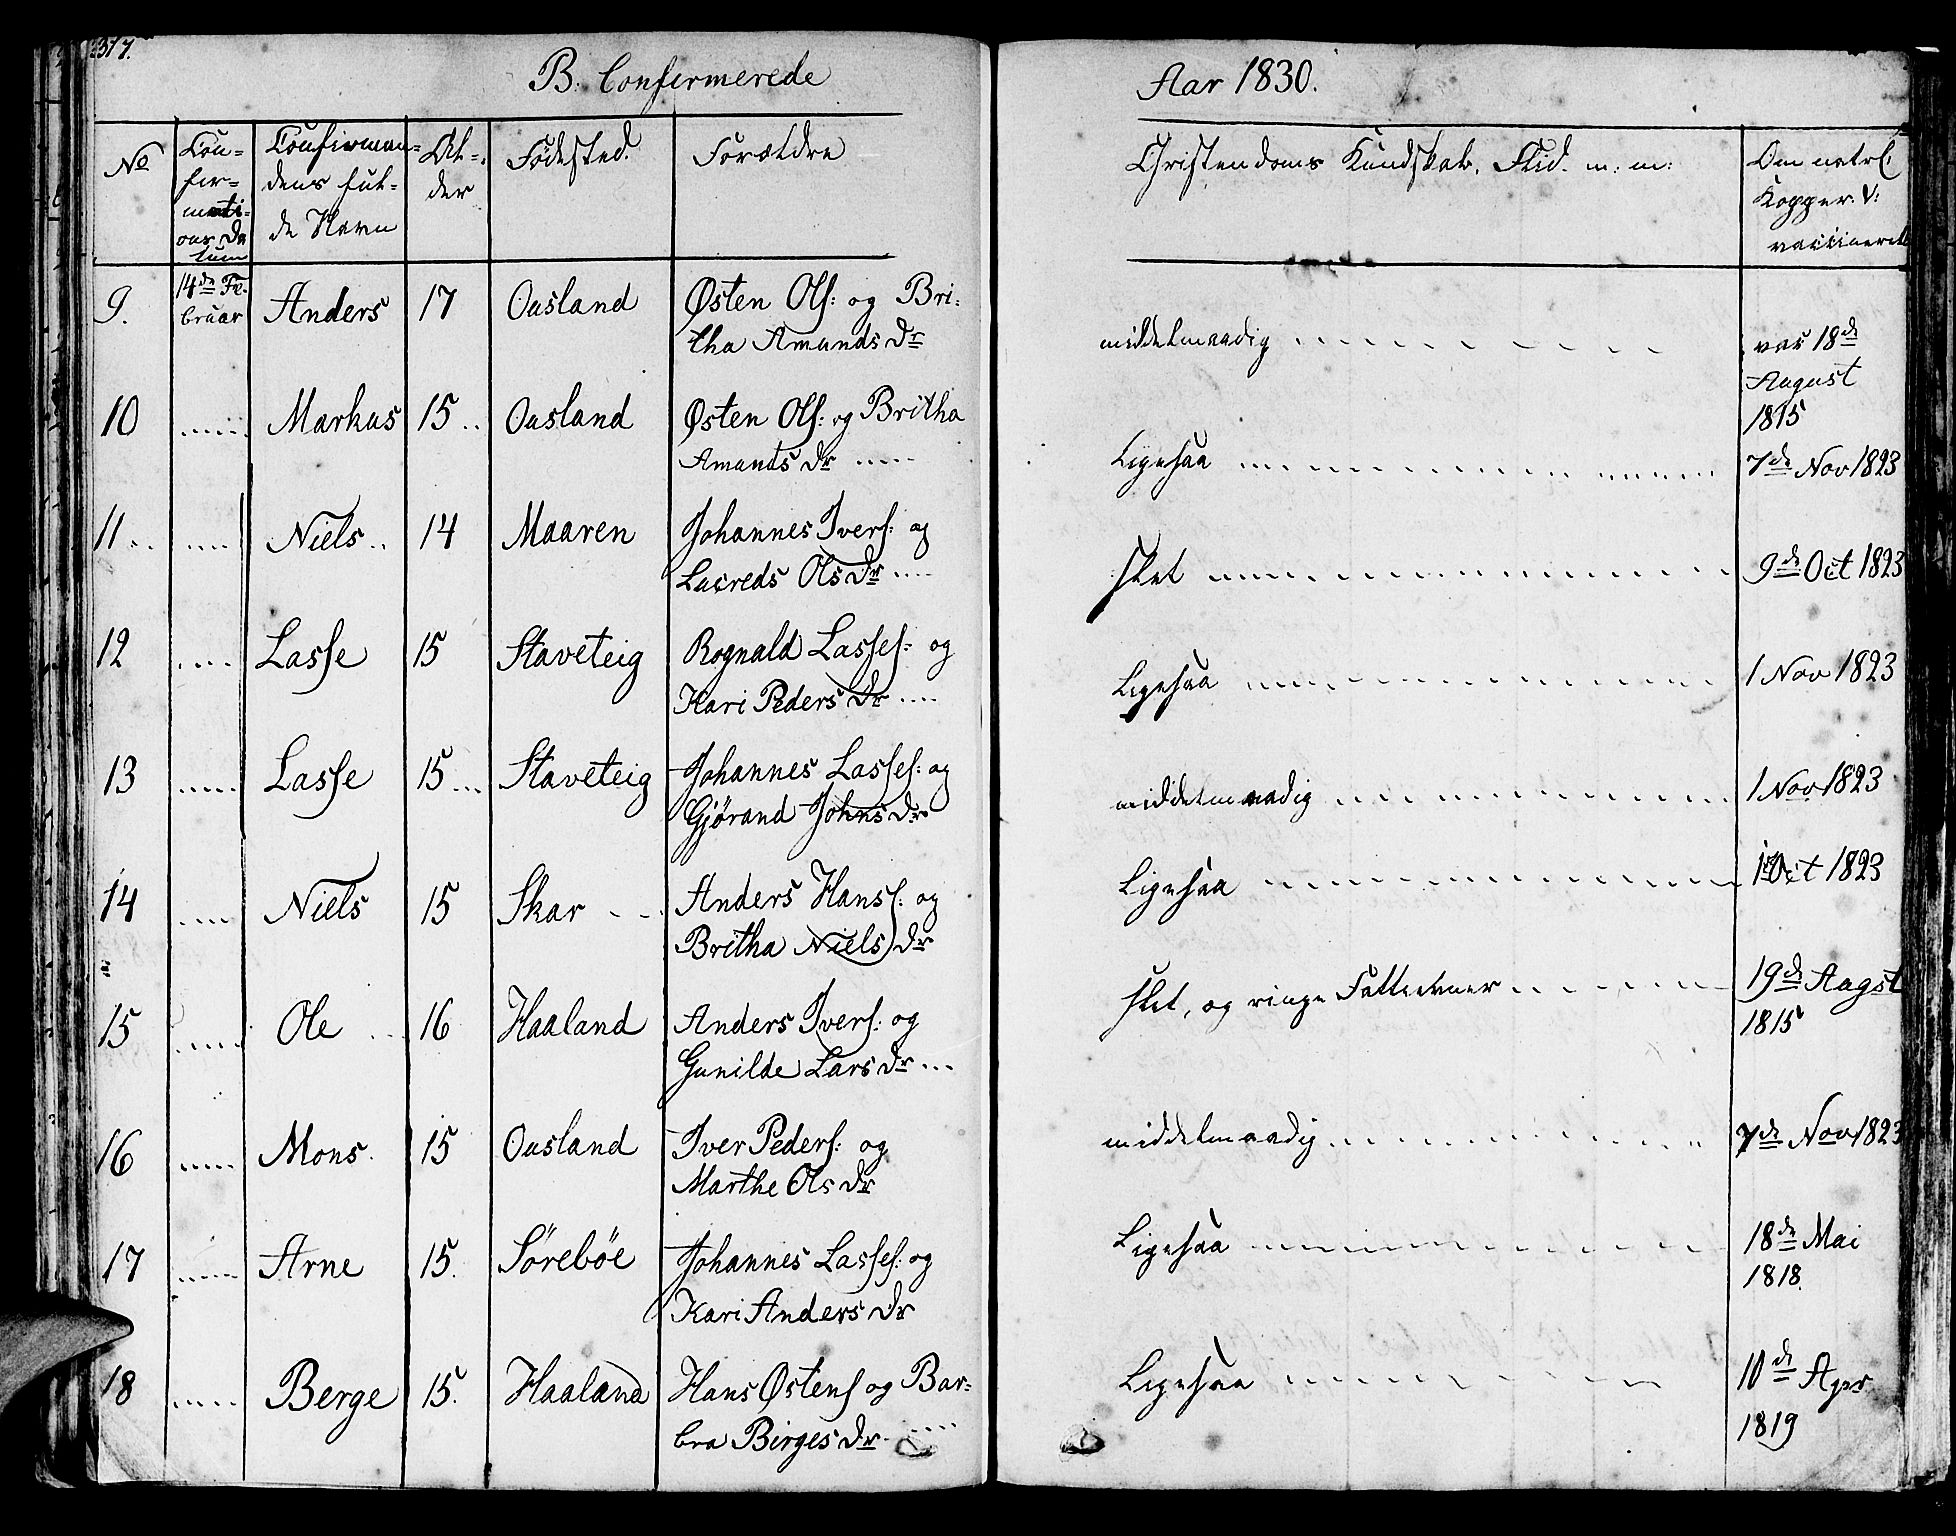 B. Confirmerede
Aar 1830.
No
Con-
fir-
mati-
ons Da
tum
Confirman-
dens ful-
de Navn
Al-
der
Fødested.
Forældre
Christendoms Kundskab, Flid. m: m:
Om natrl.
Kopper. v:
vaccinerede
9.
14de Fe-
bruar
Anders
17
Ousland
Østen Ols: og Bri-
tha Amunds Dr
middelmaadig
var 18de
August
1815
10
Markus
15
Ousland
Østen Ols: og Britha
Amunds Dr
Ligesaa
7de Nov 1823
11
Niels
14
Maaren
Johannes Ivers: og
Lacreds Ols Dr
slet
9de Oct 1823
12
Lasse
15
Staveteig
Rognald Lasses: og
Kari Peders Dr
Ligesaa
1 Nov 1823
13
Lasse
15
Staveteig
Johannes Lasses: og
Gjørand Johns Dr
middelmaadig
1 Nov 1823
14
Niels
15
Skar
Anders Hans: og
Britha Niels Dr
Ligesaa
Oct 1823
15
Ole
16
Haaland
Anders Ivers: og
Gunilde Lars Dr
slet, og ringe Fatteevner
19de Augst
1815
16
Mons
15
Ousland
Iver Peders: og
Marthe Ols Dr
middelmaadig
7de Nov 1823
17
Arne
15.
Sørebøe
Johannes Lasses: og
Kari Anders Dr
Ligesaa
18de Mai
1818.
18
Berge
15.
Haaland
Hans Østens og Bar-
bra Birges Dr
Ligesaa
10de Apr
1819